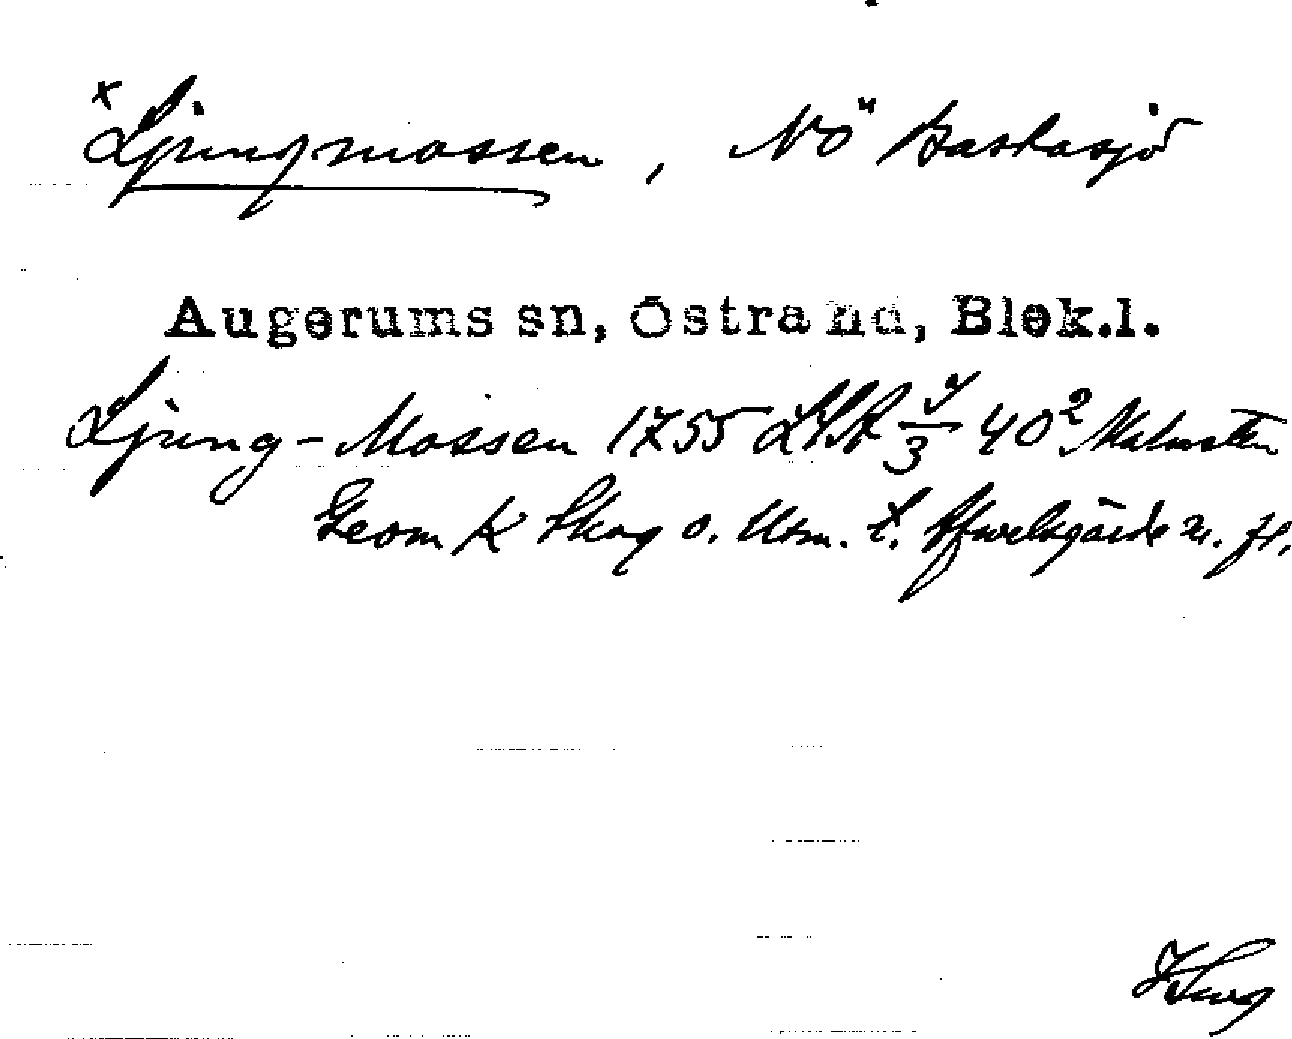 × Ljungmossen, NÖ Bastasjö
Augerums sn, Östra hd, Blek.l.
Ljung-Mossen 1755 LSA 40² Malmsten
Geom K Skog o. Utm. t. Afvelsgärde m. fl.